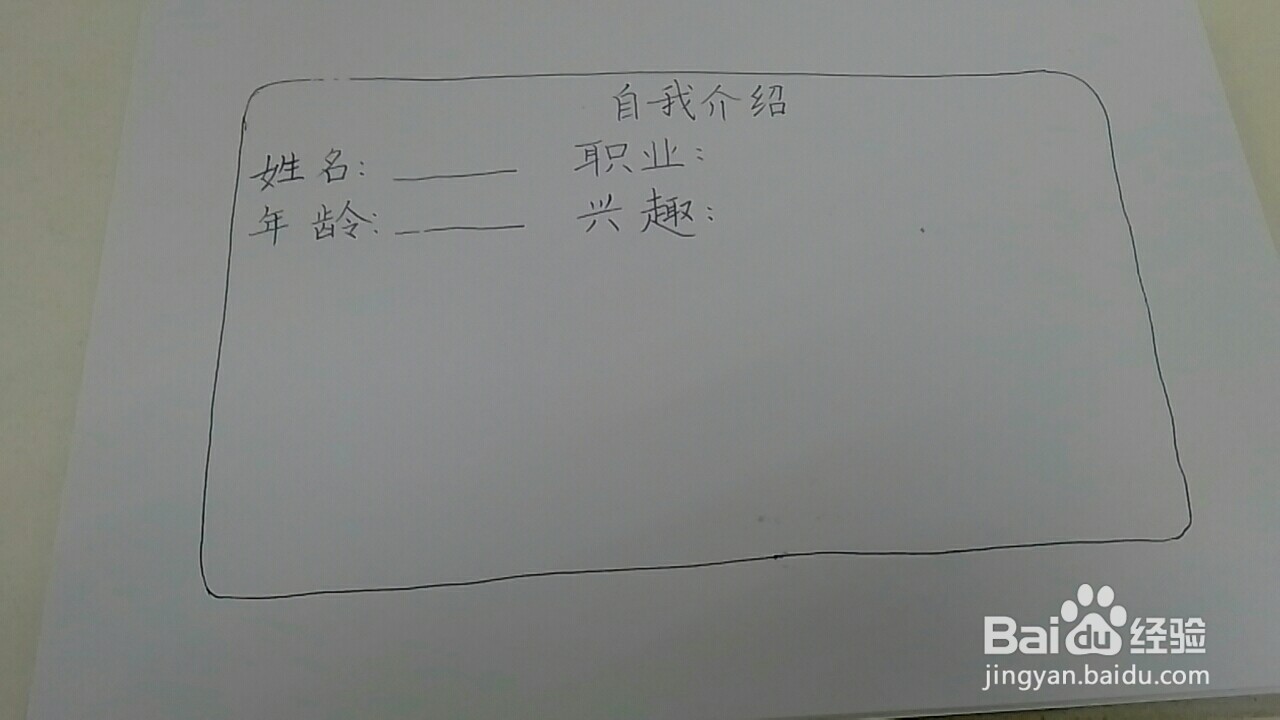 自我介绍
姓名：______ 职业：
年龄：______ 兴趣：
Bai du 经验
jingyan.baidu.com